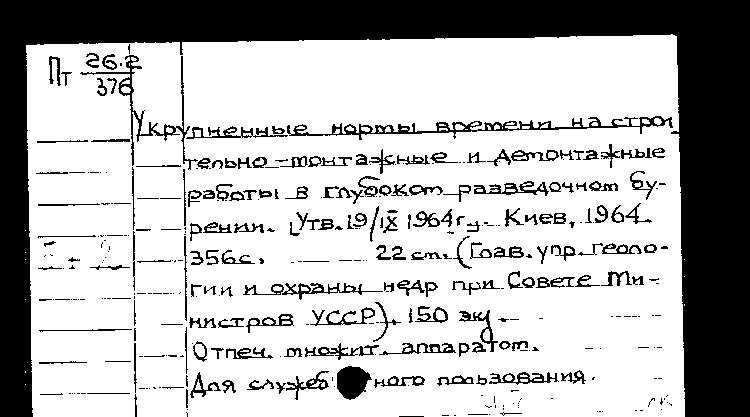 Пт 26.2
376
Укрупненные нормы времени на строи
тельно-монтажные и демонтажные
работы в глубоком разведочном бу-
рении. [Утв. 19/IX 1964г.]. Киев, 1964.
356с. 22 см. (Глав. упр. геоло-
гии и охраны недр при Совете Ми-
нистров УССР). 150 экз.
Отпеч. множит. аппаратом.
Для служебного пользования.